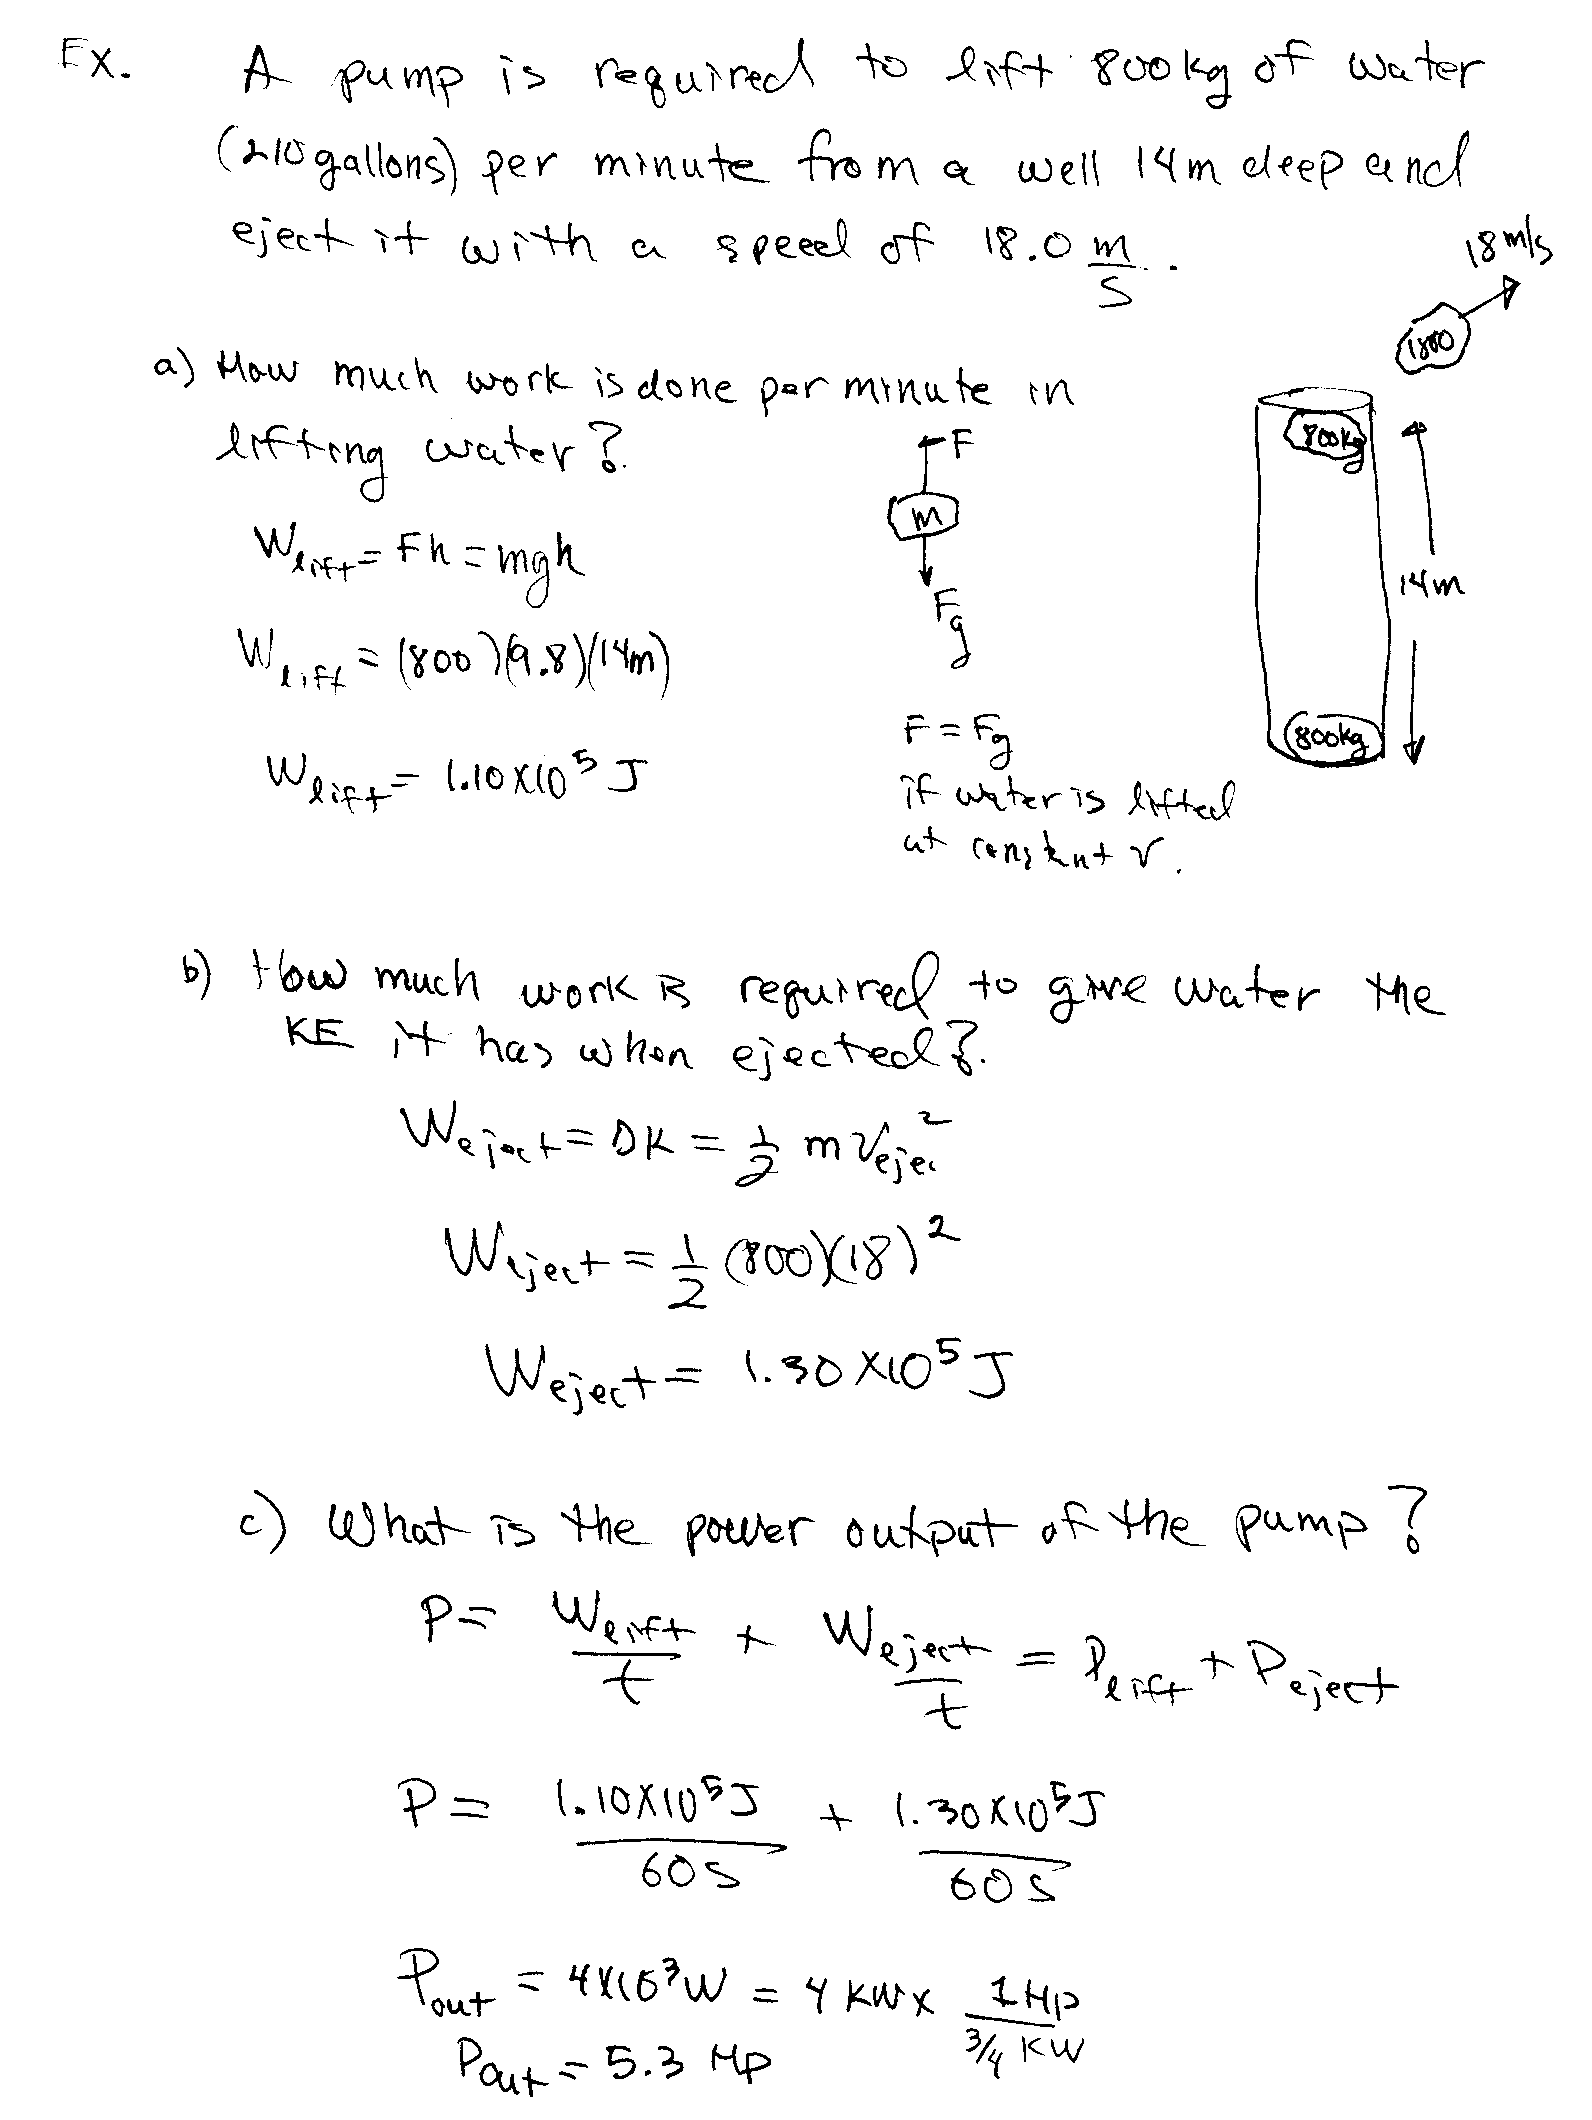 Ex. A pump is required to lift 800kg of water
(210 gallons) per minute from a well 14m deep and
eject it with a speed of 18.0 m/s.
18 m/s
800
a) How much work is done per minute in
lifting water?
F
m
Fg
800kg
14m
800kg
W lift = Fh = mgh
W lift = (800)(9.8)(14m)
W lift = 1.10 X10⁵ J
F = Fg
if water is lifted
at constant v.
b) How much work is required to give water the
KE it has when ejected?
W eject = ΔK = 1/2 m v ejec²
W eject = 1/2 (800)(18)²
W eject = 1.30 X10⁵ J
c) What is the power output of the pump?
P = W lift/t + W eject/t = P lift + P eject
P = 1.10X10⁵J/60s + 1.30X10⁵J/60s
P out = 4X10³W = 4 KW x 1 HP / 3/4 KW
P out = 5.3 HP